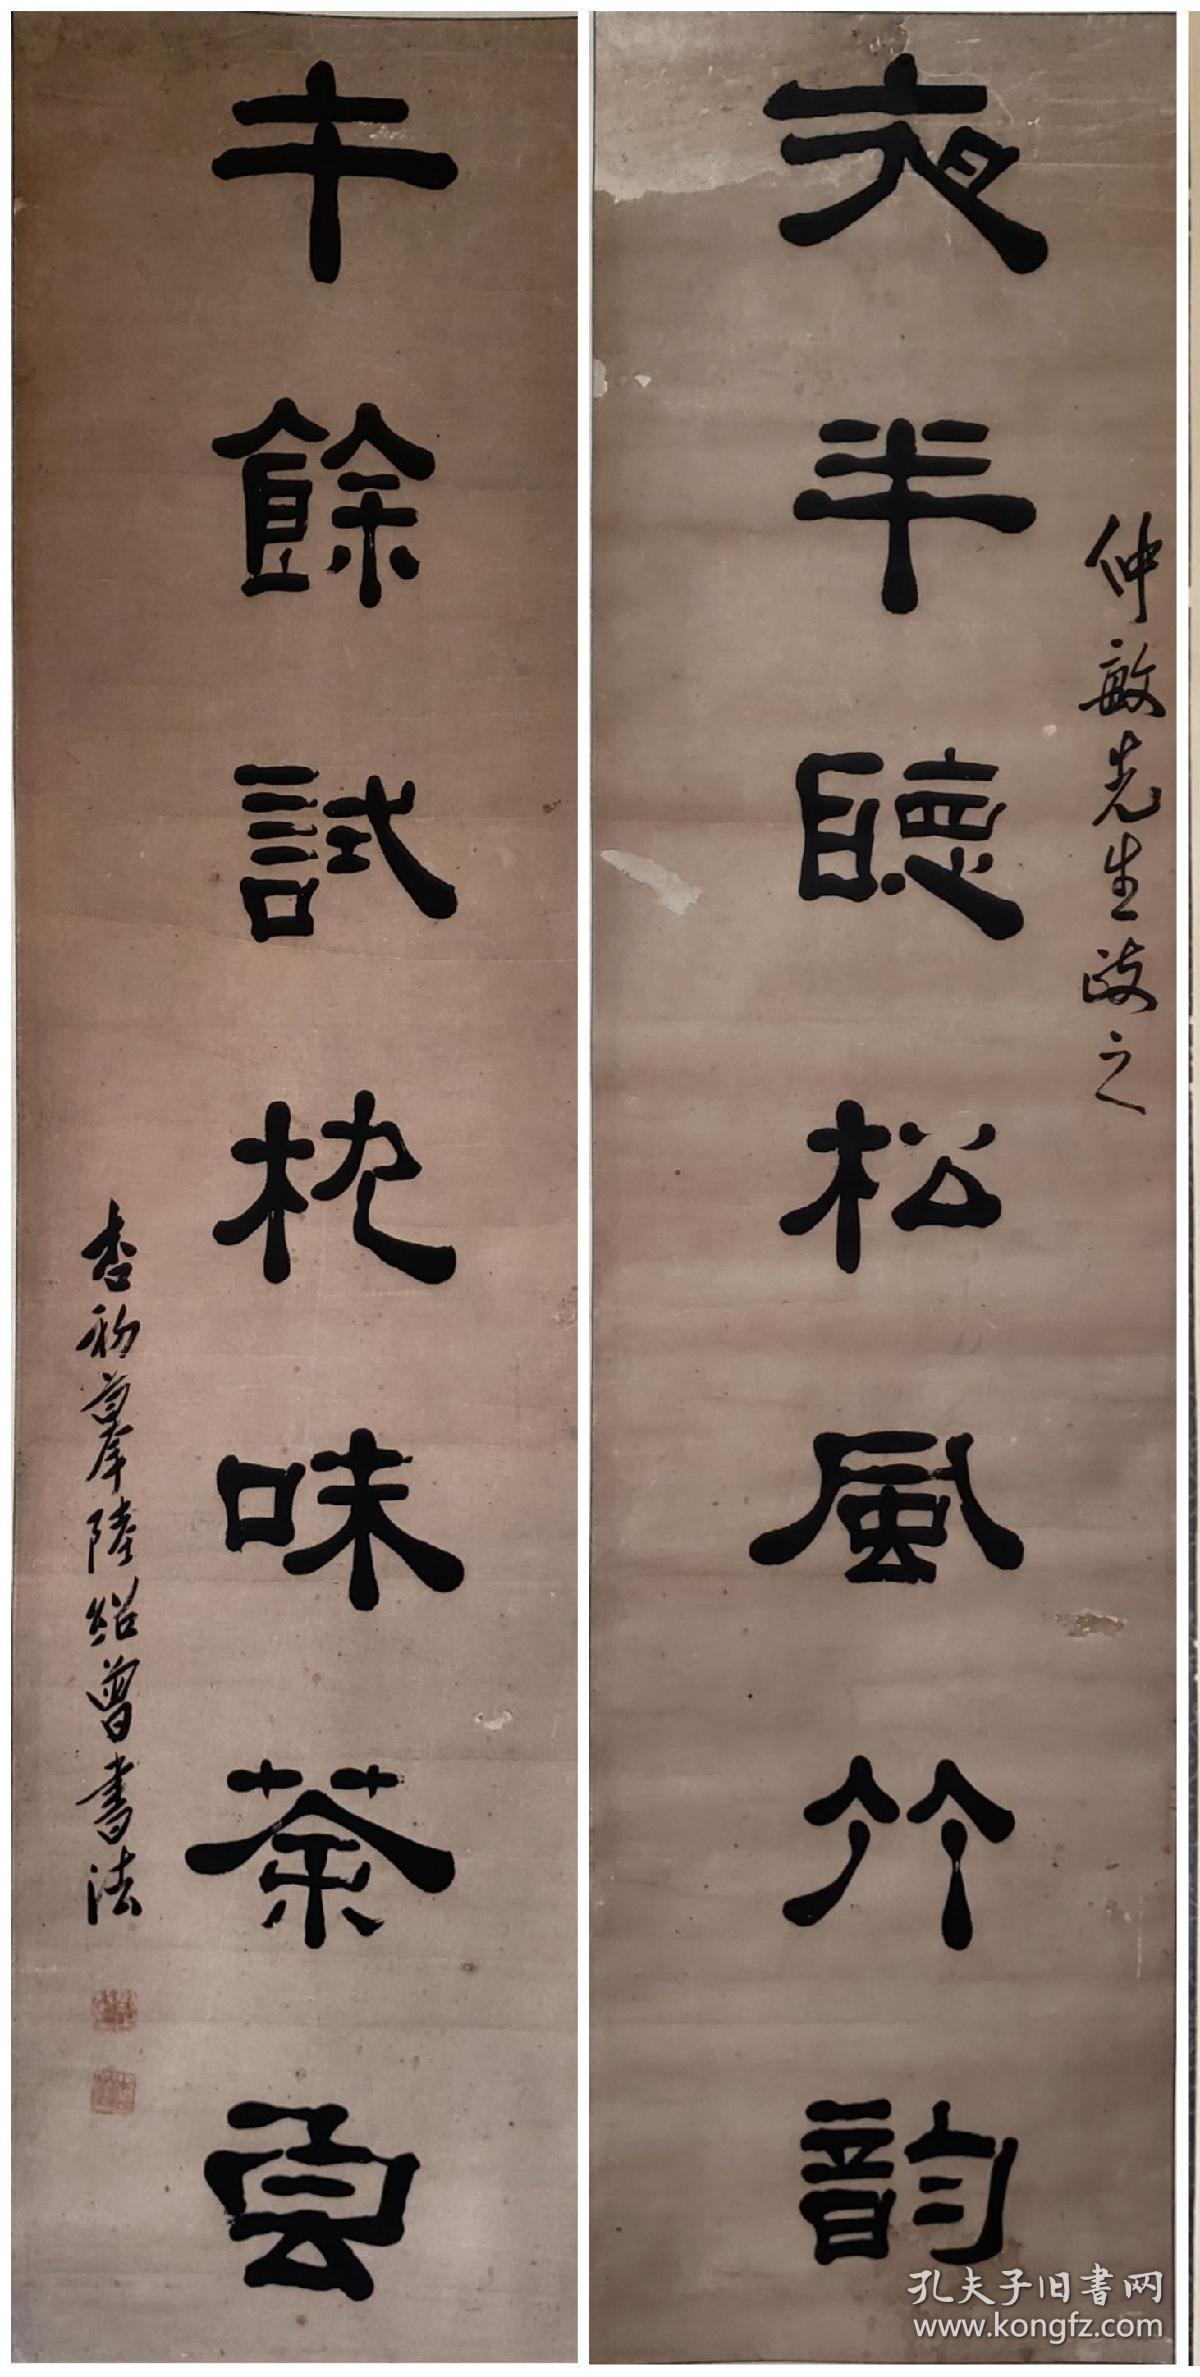 夜半聽松風竹韻
仲敏先生政之
午餘試枕味茶雲
杏初摹陸紹曾書法
孔夫子旧書网
www.kongfz.com